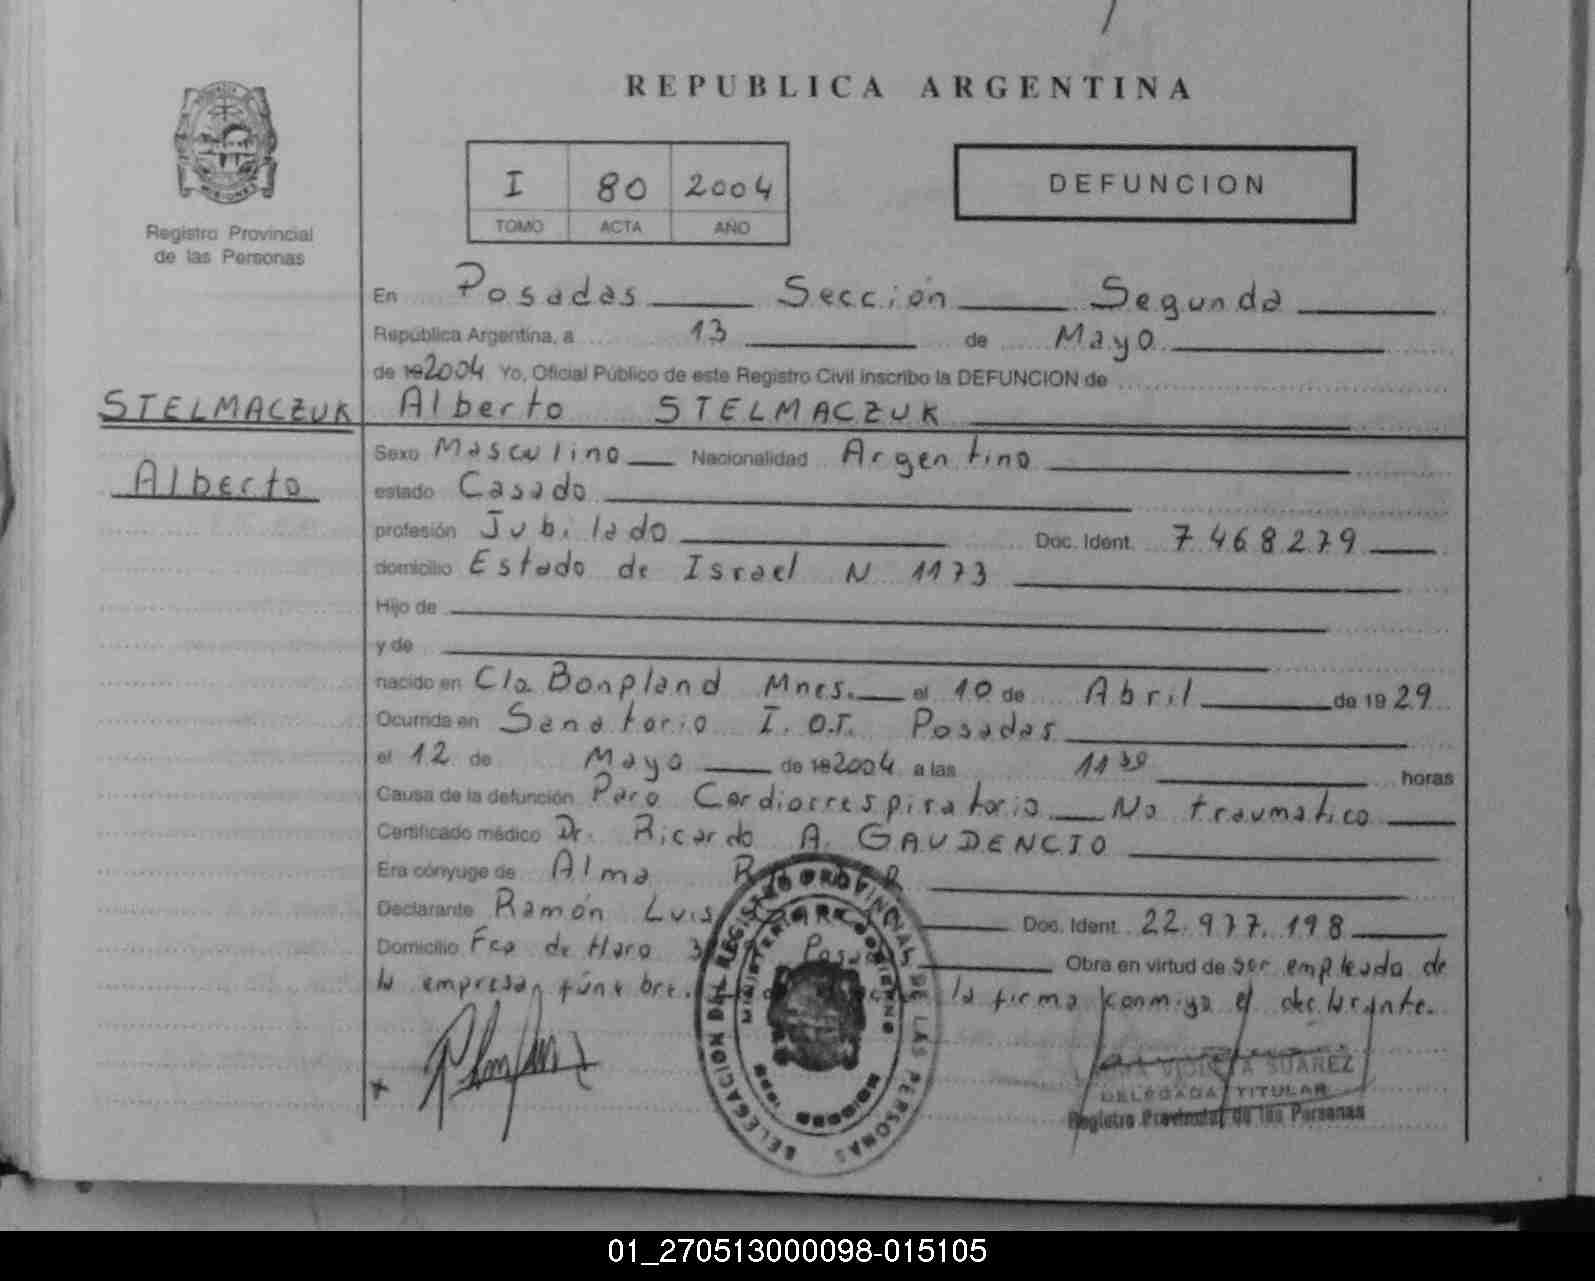 REPUBLICA ARGENTINA
I 80 2004
TOMO ACTA AÑO
DEFUNCION
Registro Provincial
de las Personas
En Posadas Sección Segunda
República Argentina, a 13 de Mayo
de 192004 Yo, Oficial Público de este Registro Civil inscribo la DEFUNCION de
STELMACZUK Alberto STELMACZUK
Alberto
Sexo Masculino Nacionalidad Argentino
estado Casado
profesión Jubilado Doc. Ident. 7.468.279
domicilio Estado de Israel N 1173
Hijo de
y de
nacido en Cla. Bonpland Mnes. el 10 de Abril de 1929
Ocurrida en Sanatorio I.O.T. Posadas
el 12 de Mayo de 192004 a las 11 30 horas
Causa de la defunción Paro Cardiorrespiratorio No traumatico
Certificado médico Dr. Ricardo A. GAUDENCIO
Era cónyuge de Alma
Declarante Ramón Luis Doc. Ident. 22.977.198
Domicilio Fco de Haro Obra en virtud de ser empleado de
la empresa fúnebre. la firma conmigo el declarante.
DELEGACION DEL REGISTRO PROVINCIAL DE LAS PERSONAS
MINISTERIO DE GOBIERNO
VIOLETA SUAREZ
DELEGADA TITULAR
Registro Provincial de las Personas
01_270513000098-015105